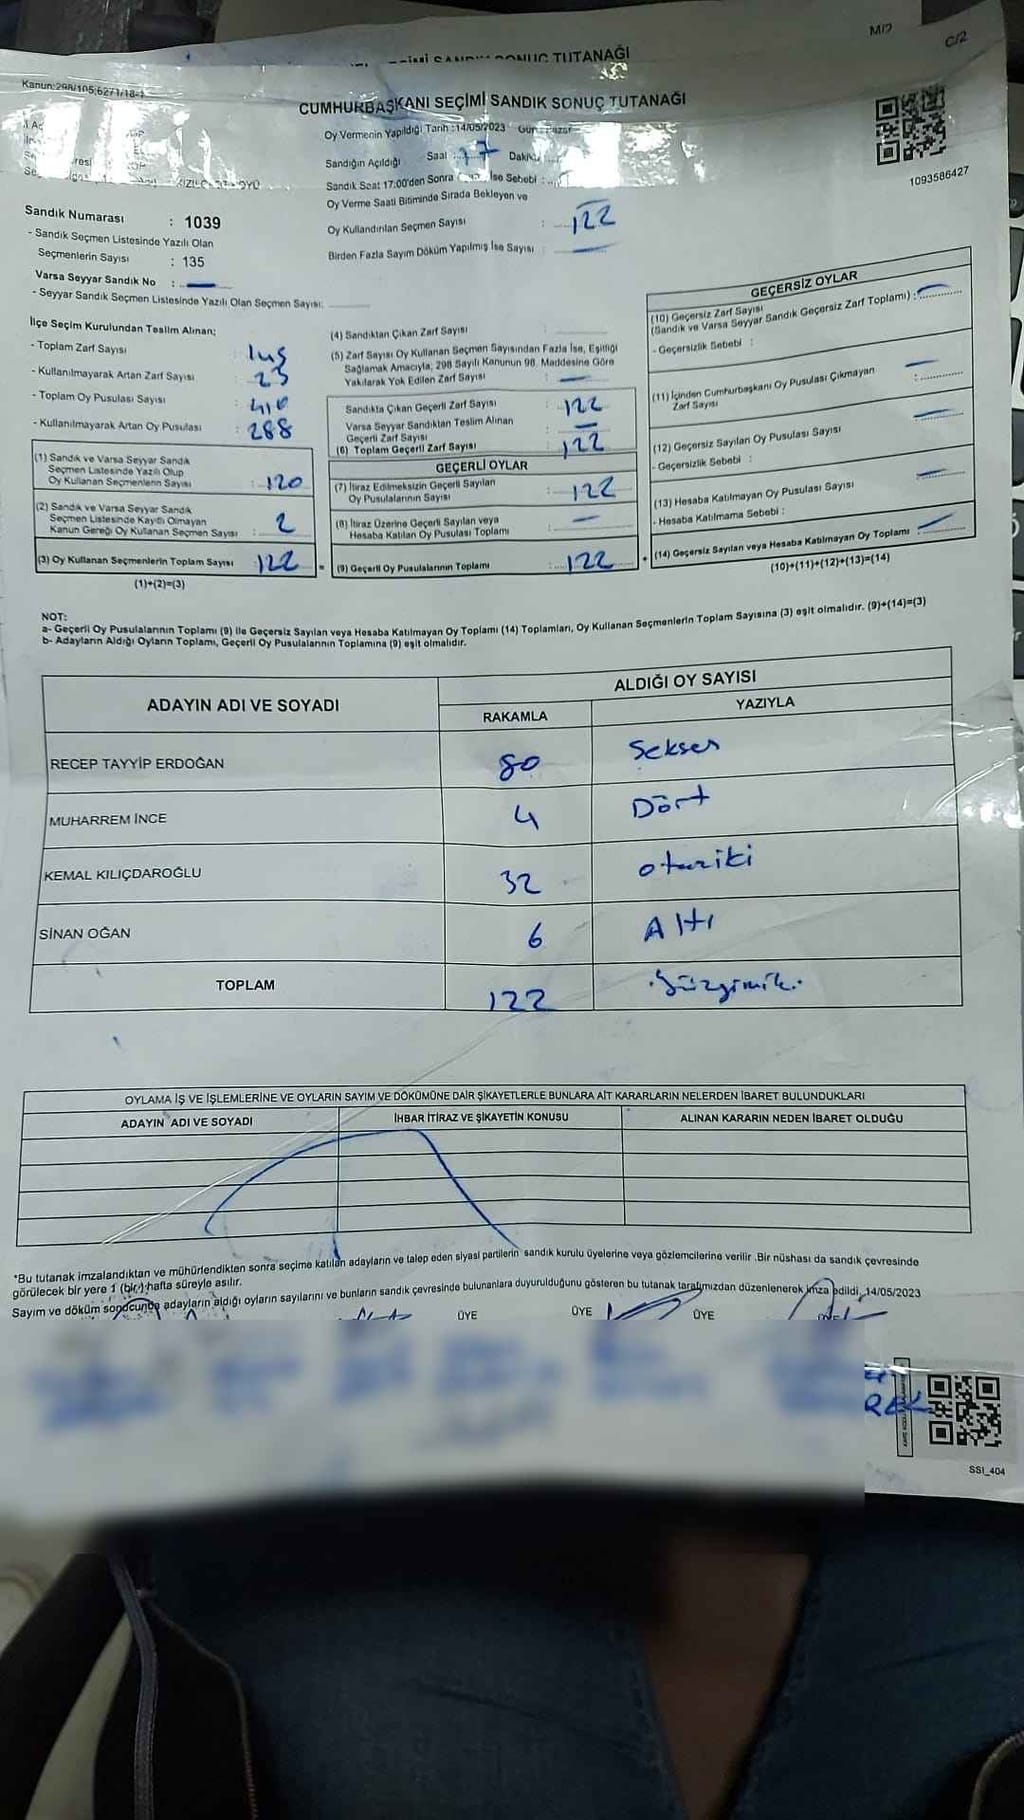 SONUÇ TUTANAĞI
C/2
CUMHURBAŞKANI SEÇİMİ SANDIK SONUÇ TUTANAĞI
Oy Vermenin Yapıldığı Tarih :14/05/2023
Sandığın Açıldığı Saat : 17
Sandık Saat 17.00'den Sonra İse Sebebi :
Oy Verme Saati Bitiminde Sırada Bekleyen ve
Oy Kullandırılan Seçmen Sayısı :
122
Birden Fazla Sayım Döküm Yapılmış İse Sayısı :
1093586427
Sandık Numarası : 1039
- Sandık Seçmen Listesinde Yazılı Olan
Seçmenlerin Sayısı : 135
Varsa Seyyar Sandık No :
- Seyyar Sandık Seçmen Listesinde Yazılı Olan Seçmen Sayısı:
İlçe Seçim Kurulundan Teslim Alınan;
- Toplam Zarf Sayısı : 145
- Kullanılmayarak Artan Zarf Sayısı : 23
- Toplam Oy Pusulası Sayısı : 410
- Kullanılmayarak Artan Oy Pusulası : 288
(1) Sandık ve Varsa Seyyar Sandık
Seçmen Listesinde Yazılı Olup
Oy Kullanan Seçmenlerin Sayısı : 120
(2) Sandık ve Varsa Seyyar Sandık
Seçmen Listesinde Kayıtlı Olmayan
Kanun Gereği Oy Kullanan Seçmen Sayısı : 2
(3) Oy Kullanan Seçmenlerin Toplam Sayısı : 122
(1)+(2)=(3)
(4) Sandıktan Çıkan Zarf Sayısı :
(5) Zarf Sayısı Oy Kullanan Seçmen Sayısından Fazla İse, Eşitliği
Sağlamak Amacıyla; 298 Sayılı Kanunun 98. Maddesine Göre
Yakılarak Yok Edilen Zarf Sayısı :
Sandıkta Çıkan Geçerli Zarf Sayısı : 122
Varsa Seyyar Sandıktan Teslim Alınan
Geçerli Zarf Sayısı :
(6) Toplam Geçerli Zarf Sayısı : 122
GEÇERLİ OYLAR
(7) İtiraz Edilmeksizin Geçerli Sayılan
Oy Pusulalarının Sayısı : 122
(8) İtiraz Üzerine Geçerli Sayılan veya
Hesaba Katılan Oy Pusulası Toplamı :
(9) Geçerli Oy Pusulalarının Toplamı : 122
GEÇERSİZ OYLAR
(10) Geçersiz Zarf Sayısı
(Sandık ve Varsa Seyyar Sandık Geçersiz Zarf Toplamı) :
- Geçersizlik Sebebi :
(11) İçinden Cumhurbaşkanı Oy Pusulası Çıkmayan
Zarf Sayısı :
(12) Geçersiz Sayılan Oy Pusulası Sayısı
- Geçersizlik Sebebi :
(13) Hesaba Katılmayan Oy Pusulası Sayısı
- Hesaba Katılmama Sebebi :
(14) Geçersiz Sayılan veya Hesaba Katılmayan Oy Toplamı
(10)+(11)+(12)+(13)=(14)
NOT:
a- Geçerli Oy Pusulalarının Toplamı (9) ile Geçersiz Sayılan veya Hesaba Katılmayan Oy Toplamı (14) Toplamları, Oy Kullanan Seçmenlerin Toplam Sayısına (3) eşit olmalıdır. (9)+(14)=(3)
b- Adayların Aldığı Oyların Toplamı, Geçerli Oy Pusulalarının Toplamına (9) eşit olmalıdır.
ADAYIN ADI VE SOYADI
ALDIĞI OY SAYISI
RAKAMLA YAZIYLA
RECEP TAYYİP ERDOĞAN 80 Seksen
MUHARREM İNCE 4 Dört
KEMAL KILIÇDAROĞLU 32 otuziki
SİNAN OĞAN 6 Altı
TOPLAM 122
OYLAMA İŞ VE İŞLEMLERİNE VE OYLARIN SAYIM VE DÖKÜMÜNE DAİR ŞİKAYETLERLE BUNLARA AİT KARARLARIN NELERDEN İBARET BULUNDUKLARI
ADAYIN ADI VE SOYADI İHBAR İTİRAZ VE ŞİKAYETİN KONUSU ALINAN KARARIN NEDEN İBARET OLDUĞU
*Bu tutanak imzalandıktan ve mühürlendikten sonra seçime katılan adayların ve talep eden siyasi partilerin sandık kurulu üyelerine veya gözlemcilerine verilir .Bir nüshası da sandık çevresinde
görülecek bir yere 1 (bir) hafta süreyle asılır.
Sayım ve döküm sonucunda adayların aldığı oyların sayılarını ve bunların sandık çevresinde bulunanlara duyurulduğunu gösteren bu tutanak tarafımızdan düzenlenerek imza edildi. 14/05/2023
ÜYE ÜYE ÜYE
SSI_404